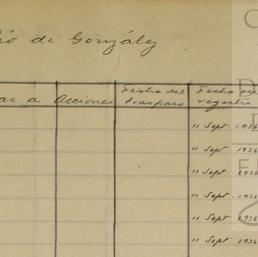 ió de González
as a Acciones Fecha del traspaso Fecha del registro
" Sept. 1936
" Sept. 1936
" Sept. 1936
" Sept. 1936
" Sept. 1936
" Sept. 1936